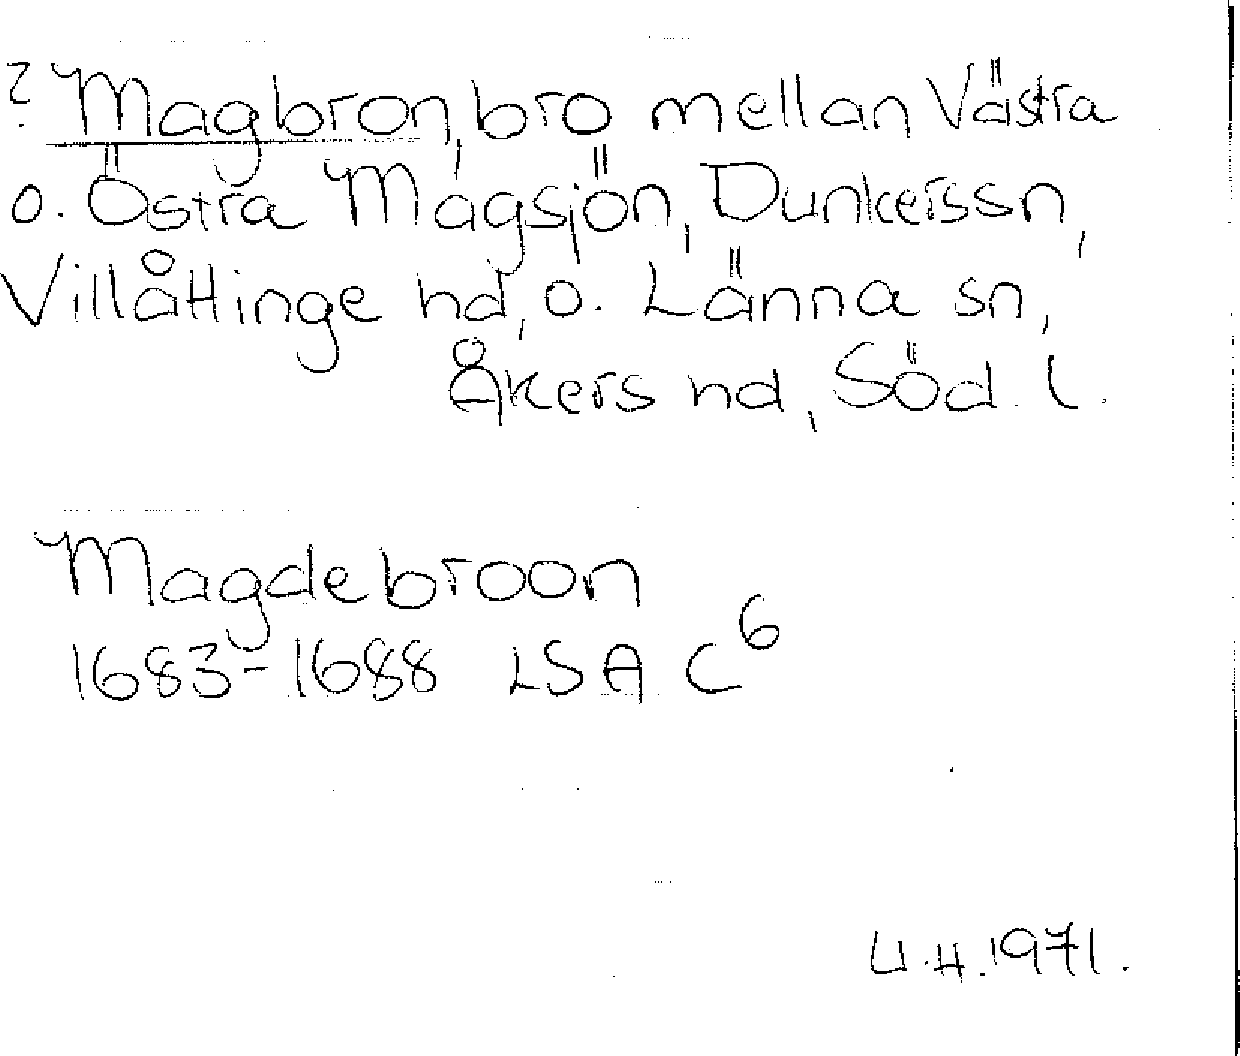 ? Magbron, bro mellan Västra
o. Östra Magsjön, Dunkerssn,
Villåttinge hd, o. Länna sn,
Åkers hd, Söd. l.
Magdebroon
1683-1688 LSA C⁶
U.H. 1971.